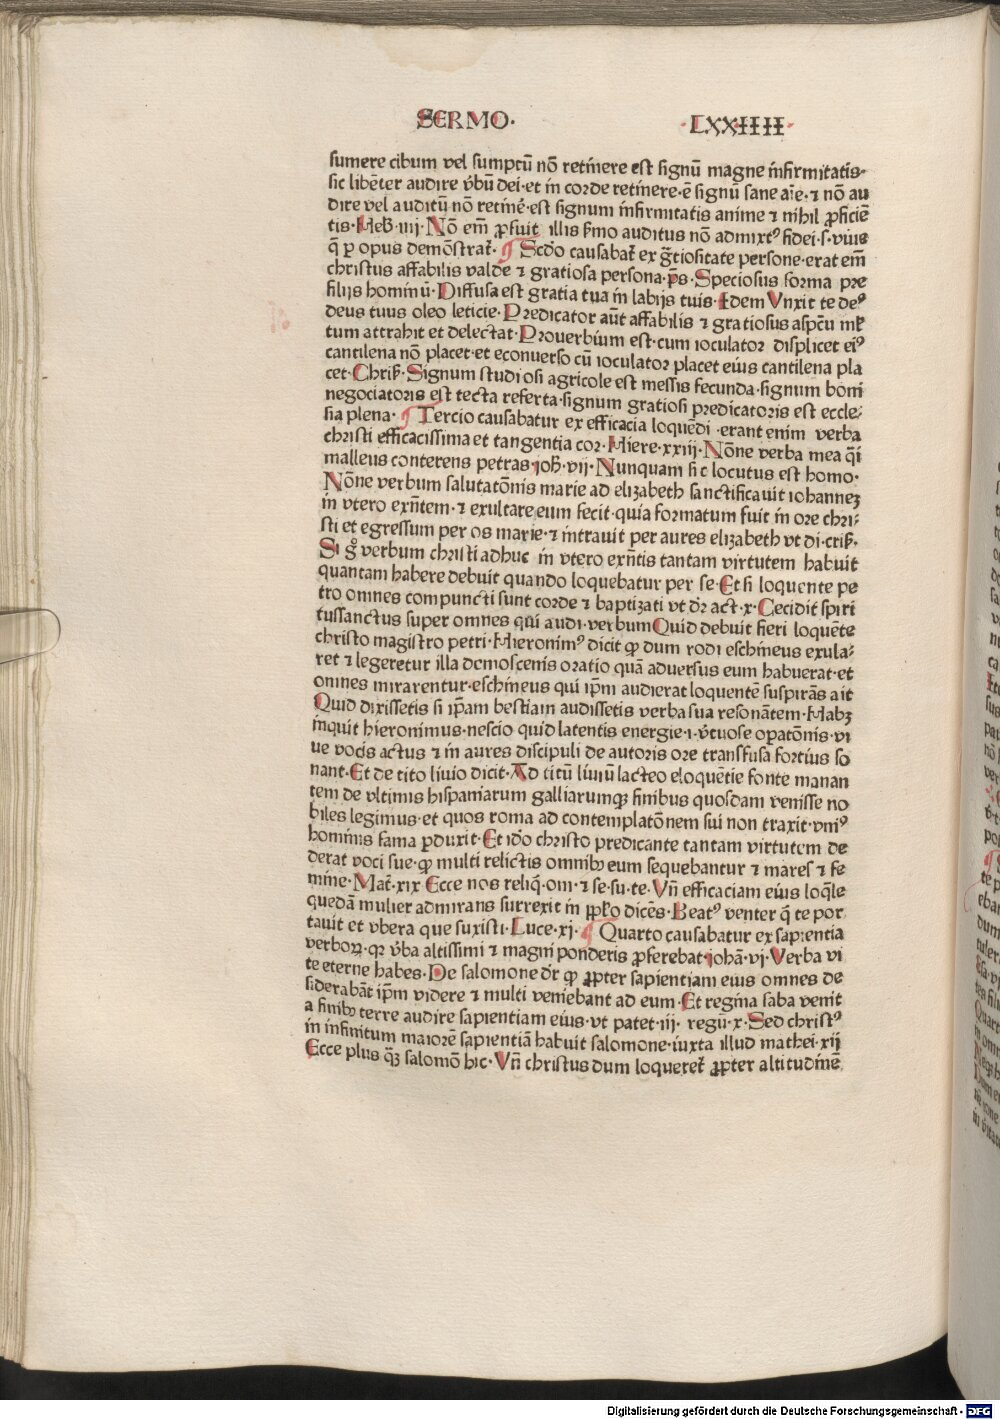 SERMO· ·LXXIIII·
sumere cibum vel sumptū nō retinere est signū magne infirmitatis·
sic libēter audire v̄bū dei·et in corde retinere·ē signū sane aīe·⁊ nō au
dire vel auditū nō retinē·est signum infirmitatis anime ⁊ nihil ꝓficiē
tis·Heb̄·iiij·Nō em̄ ꝓfuit illis s̄mo auditus nō admixtꝰ fidei·s·viuis
q̄ ꝑ opus demōstrat̄· ¶ Scd̄o causabat̄ ex ḡtiositate persone·erat em̄
christus affabilis valde ⁊ gratiosa persona·p̄s·Speciosus forma pre
filijs hominū·Diffusa est gratia tua in labijs tuis·Idem Vnxit te deꝰ
deus tuus oleo leticie·Predicator aūt affabilis ⁊ gratiosus aspc̄u ml̄
tum attrahit et delectat·Prouerbium est·cum ioculator displicet eiꝰ
cantilena nō placet·et econuerso cū ioculator placet eius cantilena pla
cet·Chriſ·Signum studiosi agricole est messis fecunda·signum boni
negociatoris est tecta referta·signum gratiosi predicatoris est eccle⸗
sia plena· ¶ Tercio causabatur ex efficacia loquēdi·erant enim verba
christi efficacissima et tangentia cor·Hiere·xxiij·Nōne verba mea q̄i
malleus conterens petras·ioh̄·vij·Nunquam sic locutus est homo·
Nōne verbum salutatōnis marie ad elizabeth sanctificauit iohannez
in vtero exn̄tem·⁊ exultare eum fecit·quia formatum fuit in ore chri⸗
sti et egressum per os marie·⁊ intrauit per aures elizabeth vt di·criſ·
Si gͦ verbum christi adhuc in vtero exn̄tis tantam virtutem habuit
quantam habere debuit quando loquebatur per se·Et si loquente pe
tro omnes compuncti sunt corde ⁊ baptizati vt dr̄ act·x·Cecidit spiri
tussanctus super omnes qui audi·verbum Quid debuit fieri loquēte
christo magistro petri·Hieronimꝰ dicit ꝙ dum rodi eschineus exula⸗
ret ⁊ legeretur illa demoscenis oratio quā aduersus eum habuerat·et
omnes mirarentur·eschineus qui ip̄m audierat loquentē suspirās ait
Quid dixissetis si ip̄am bestiam audissetis verba sua resonātem·Habꝫ
inquit hieronimus·nescio quid latentis energie·i·v̄tuose opatōnis·vi
ue vocis actus ⁊ in aures discipuli de autoris ore transfusa fortius so
nant·Et de tito liuio dicit·Ad titū liuiū lacteo eloquētie fonte manan
tem de vltimis hispaniarum galliarumqꝫ finibus quosdam venisse no
biles legimus·et quos roma ad contemplatōnem sui non traxit·vniꝰ
hominis fama ꝑduxit·Et iđo christo predicante tantam virtutem de
derat voci sue·ꝙ multi relictis omnibꝫ eum sequebantur ⁊ mares ⁊ fe
mine·Mat̄·xix Ecce nos reliq̄·om·⁊ se·su·te·Vn̄ efficaciam eius loq̄le
quedā mulier admirans surrexit in ppl̄o dicēs·Beatꝰ venter q̄ te por
tauit et vbera que suxisti·Luce·xj· ¶ Quarto causabatur ex sapientia
verboꝝ·qꝛ v̄ba altissimi ⁊ magni ponderis ꝓferebat·johā·vj·Verba vi
te eterne habes·De salomone dr̄ ꝙ ꝓpter sapientiam eius omnes de
siderabāt ip̄m videre ⁊ multi veniebant ad eum·Et regina saba venit
a finibꝫ terre audire sapientiam eius·vt patet·iij· regū·x·Sed christꝰ
in infinitum maiorē sapientiā habuit salomone·iuxta illud mathei·xij
Ecce plus qꝫ salomō hic·Vn̄ christus dum loqueret̄ ꝓpter altitudinē
Digitalisierung gefördert durch die Deutsche Forschungsgemeinschaft - DFG